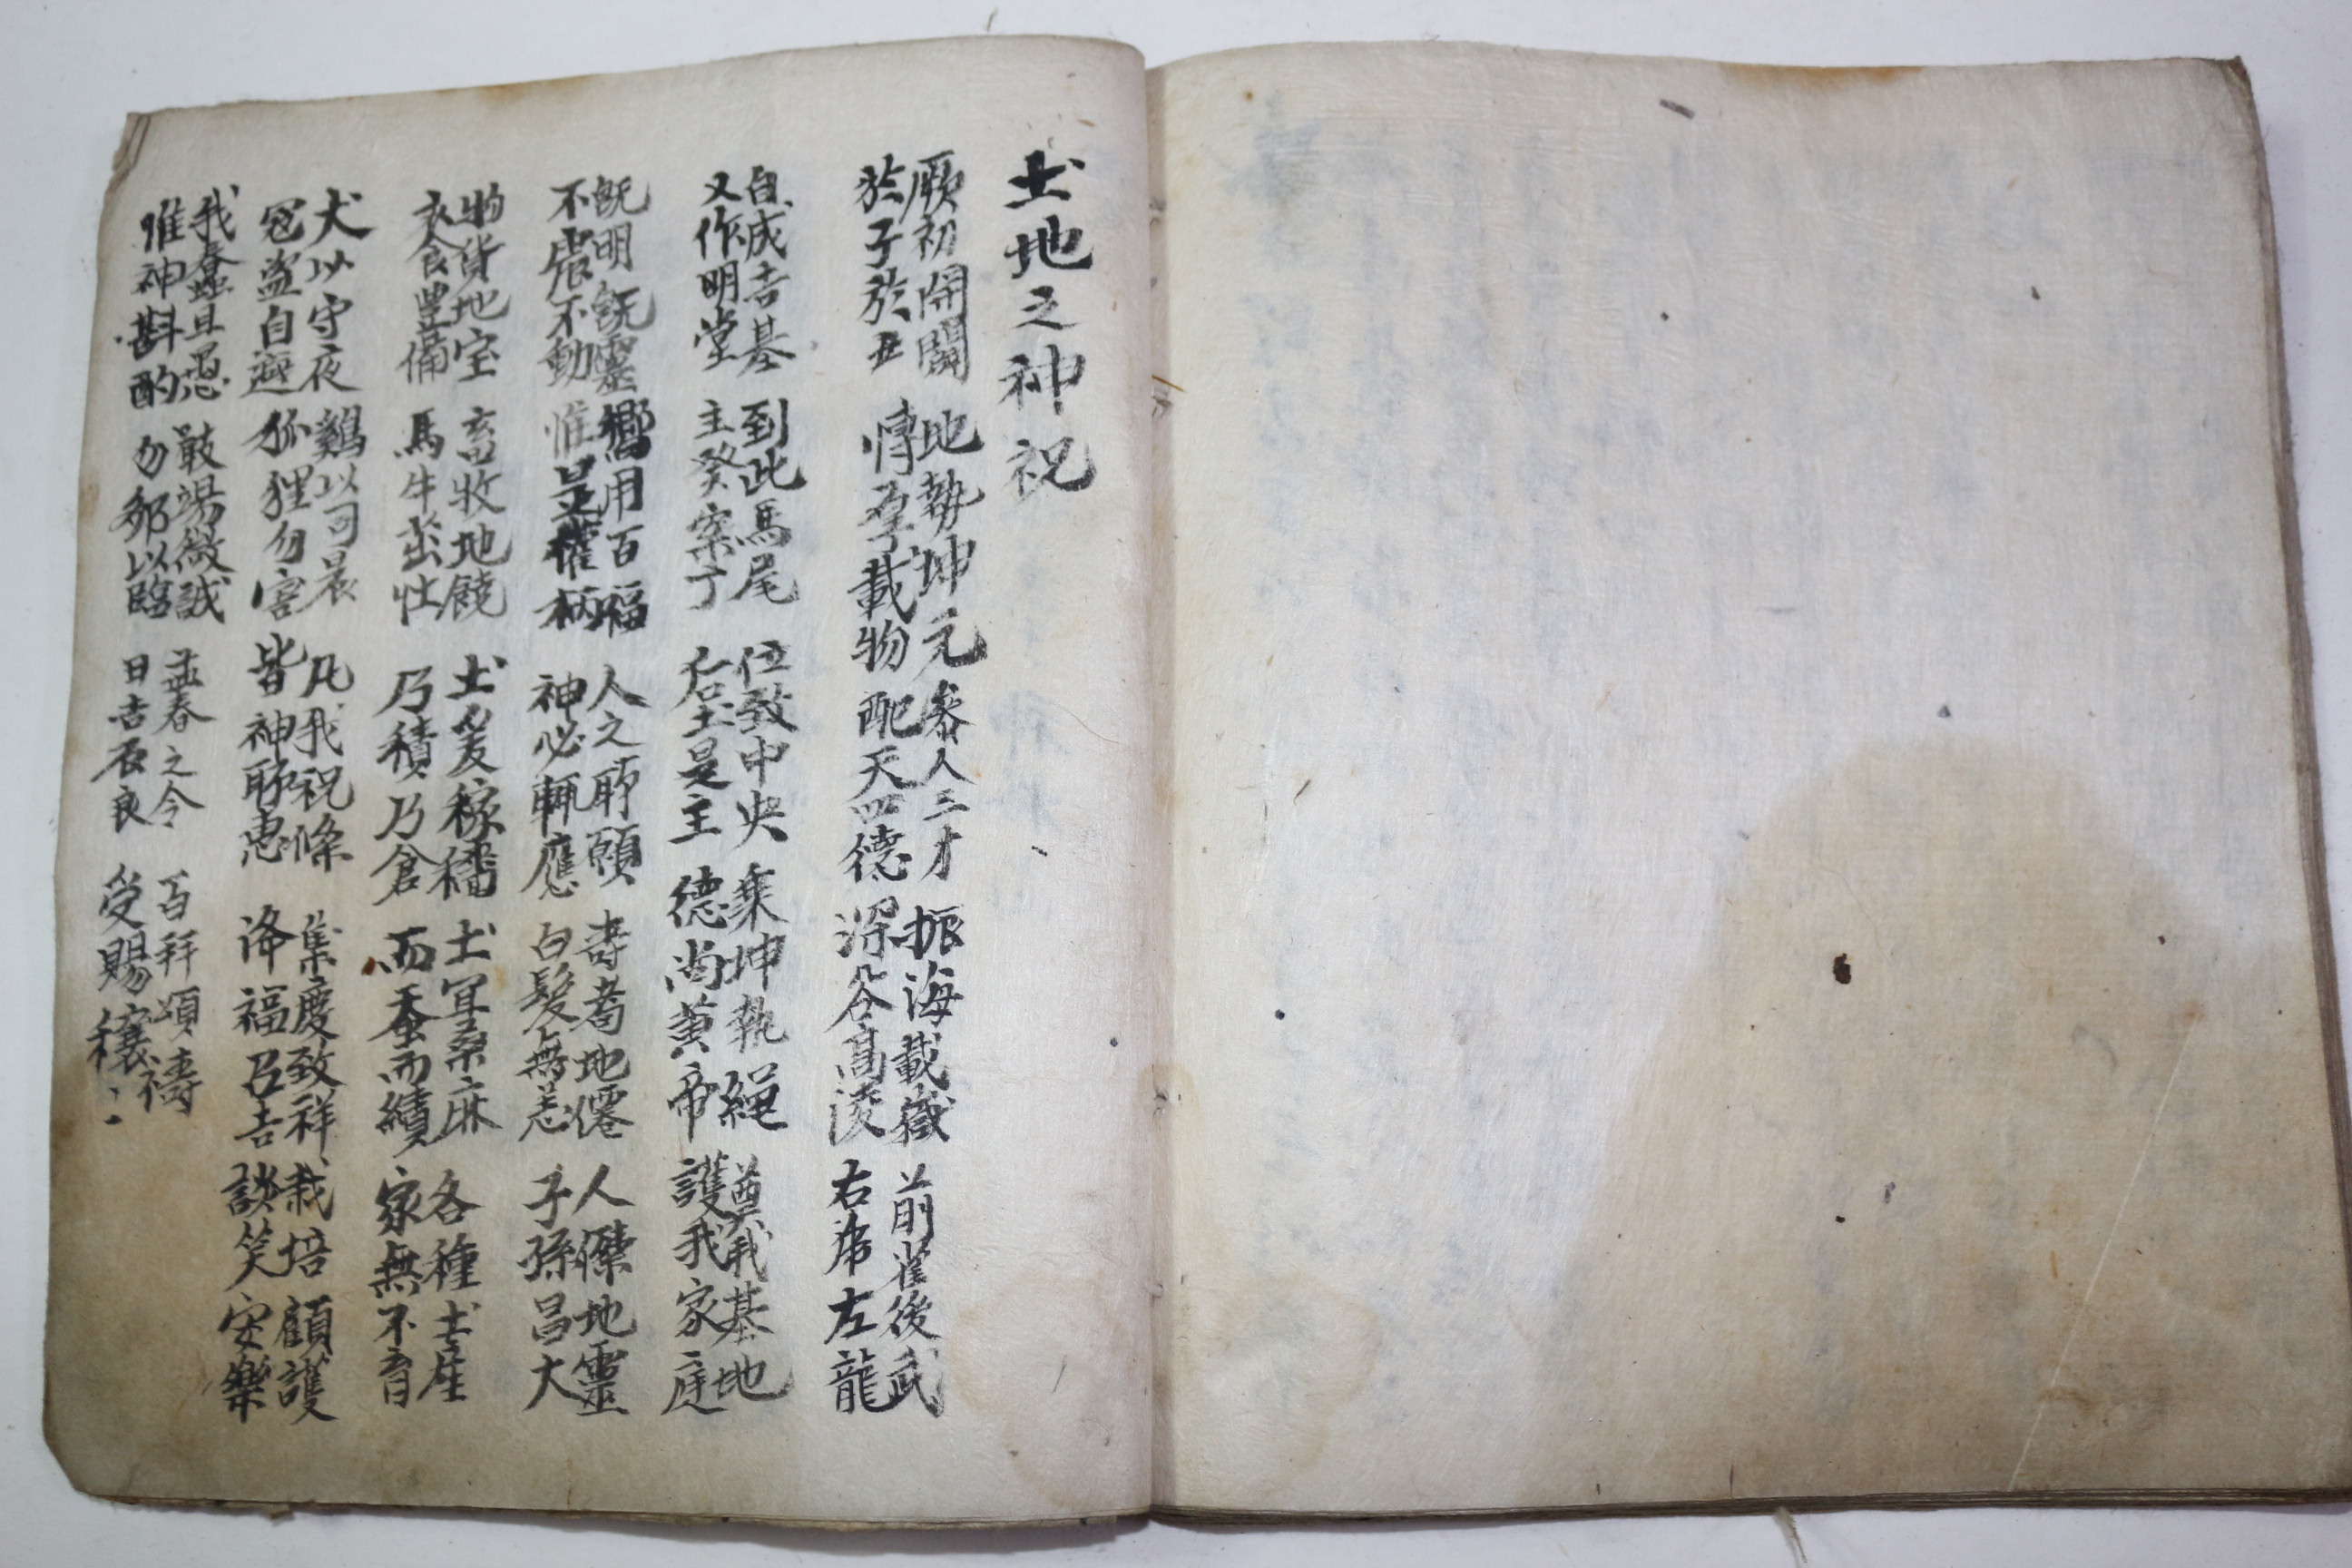 土地之神祝
厥初開闢 地勢坤元 參人三才 振海載嶽 前雀後武
於子於丑 博厚載物 配天四德 深谷高陵 右虎左龍
自成吉基 到此馬尾 位致中央 乘坤執繩 奠我基地
又作明堂 主癸案丁 后土是主 德尚黃帝 護我家庭
旣明旣靈 嚮用百福 人之所願 壽耉地僊 人傑地靈
不震不動 惟是權柄 神必輒應 白髮無恙 子孫昌大
物貨地宝 畜牧地饒 土爰稼穡 土宜桑麻 各種土産
衣食豊備 馬牛茁壯 乃積乃倉 而蚕而績 家無不育
犬以守夜 鷄以司晨 凡我祝條 集慶致祥 栽培顧護
冦盜自避 狐狸勿害 皆神所惠 降福召吉 談笑安樂
我蠢且愚 敢竭微誠 孟春之令 百拜頌禱
惟神斟酌 勿邪以臨 日吉辰良 受賜穰〻